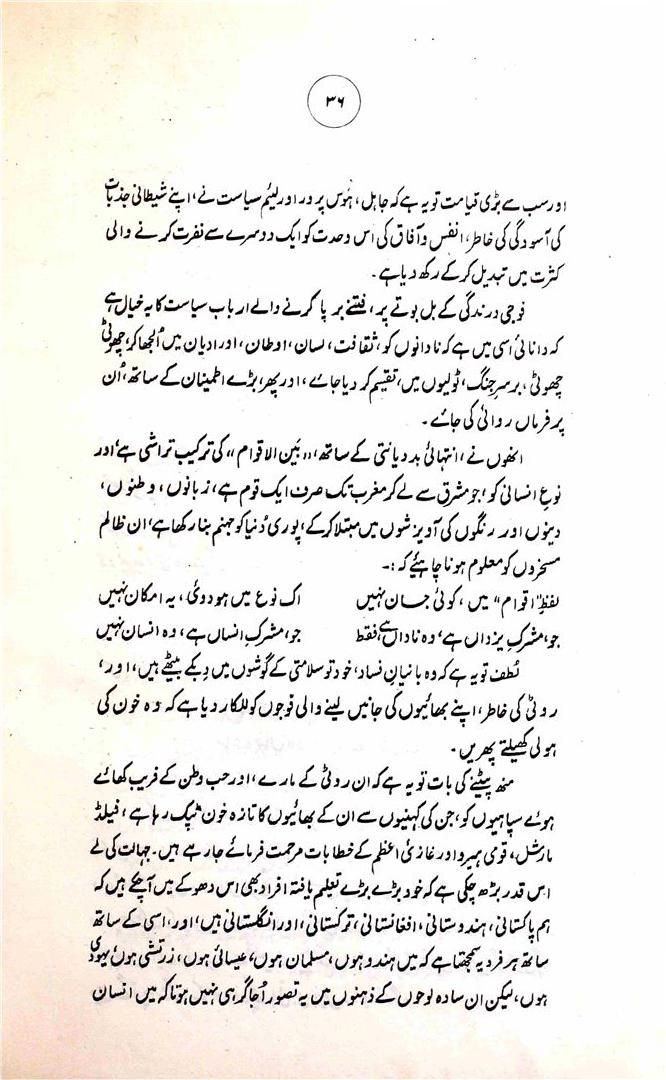 ۳۶
اور سب سے بڑی قیامت تو یہ ہے کہ جاہل، ہوس پرور اور لئیم سیاست نے، اپنے شیطانی جذبات
کی آسودگی کی خاطر، انفس و آفاق کی اس وحدت کو ایک دوسرے سے نفرت کرنے والی
کثرت میں تبدیل کر کے رکھ دیا ہے۔
فوجی درندگی کے بل بوتے پر، فتنے برپا کرنے والے ارباب سیاست کا یہ خیال ہے
کہ دانائی اسی میں ہے کہ نادانوں کو، ثقافت، لسان، اوطان، اور ادیان میں اُلجھا کر، چھوٹی
چھوٹی، برسرِ جنگ، ٹولیوں میں، تقسیم کر دیا جائے، اور پھر، بڑے اطمینان کے ساتھ، اُن
پر فرماں روائی کی جائے۔
انھوں نے، انتہائی بددیانتی کے ساتھ، "بین الاقوام" کی ترکیب تراشی ہے، اور
نوعِ انسانی کو، جو مشرق سے لے کر مغرب تک صرف ایک قوم ہے، زبانوں، وطنوں،
دینوں اور رنگوں کی آویزشوں میں مبتلا کر کے، پوری دُنیا کو جہنم بنا رکھا ہے، ان ظالم
مسخروں کو معلوم ہونا چاہئیے کہ :۔
لفظِ "اقوام" میں، کوئی جان نہیں اک نوع میں ہو دوئی، یہ امکان نہیں
جو، مشرکِ یزداں ہے، وہ ناداں ہے فقط جو، مشرکِ انساں ہے، وہ انسان نہیں
لُطف تو یہ ہے کہ وہ بانیانِ فساد، خود تو سلامتی کے گوشوں میں دبکے بیٹھے ہیں، اور،
روٹی کی خاطر، اپنے بھائیوں کی جانیں لینے والی فوجوں کو للکار دیا ہے کہ وہ خون کی
ہولی کھیلتے پھریں۔
منھ پیٹنے کی بات تو یہ ہے کہ ان روٹی کے مارے، اور حب وطن کے فریب کھائے
ہوئے سپاہیوں کو، جن کی کہنیوں سے ان کے بھائیوں کا تازہ خون ٹپک رہا ہے، فیلڈ
مارشل، قومی ہیرو اور غازیِ اعظم کے خطابات مرحمت فرمائے جا رہے ہیں۔ جہالت کی لے
اس قدر بڑھ چکی ہے کہ خود بڑے بڑے تعلیم یافتہ افراد بھی اس دھوکے میں آ چکے ہیں کہ
ہم پاکستانی، ہندوستانی، افغانستانی، ترکستانی، اور انگلستانی ہیں، اور، اسی کے ساتھ
ساتھ ہر فرد یہ سمجھتا ہے کہ میں ہندو ہوں، مسلمان ہوں، عیسائی ہوں، زرتشی ہوں، یہودی
ہوں، لیکن ان سادہ لوحوں کے ذہنوں میں یہ تصور اُجاگر ہی نہیں ہوتا کہ میں انسان